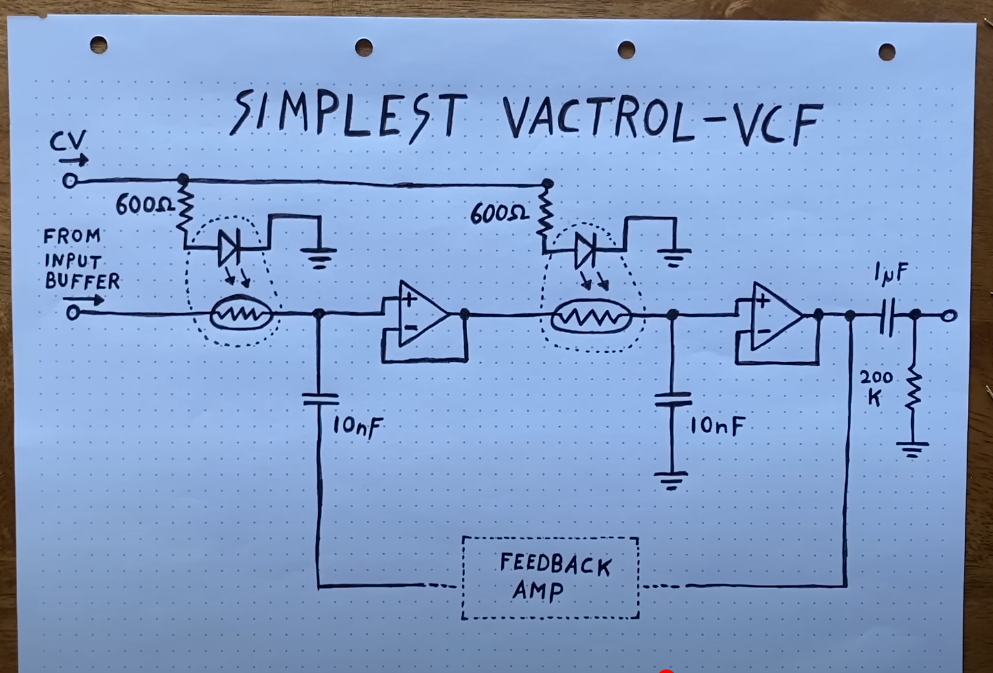 SIMPLEST VACTROL-VCF
CV
600Ω
600Ω
FROM
INPUT
BUFFER
1μF
+
-
+
-
200
K
10nF
10nF
FEEDBACK
AMP